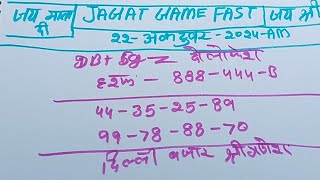 जय माता दी JAGAT GAME FAST जय श्री
22-अक्टूबर-2024-AM
DB+ Sg = त्रैलोकेश
हरूफ - 888-444-B
44-35-25-89
99-78-88-70
दिल्ली बाजार श्री गणेश